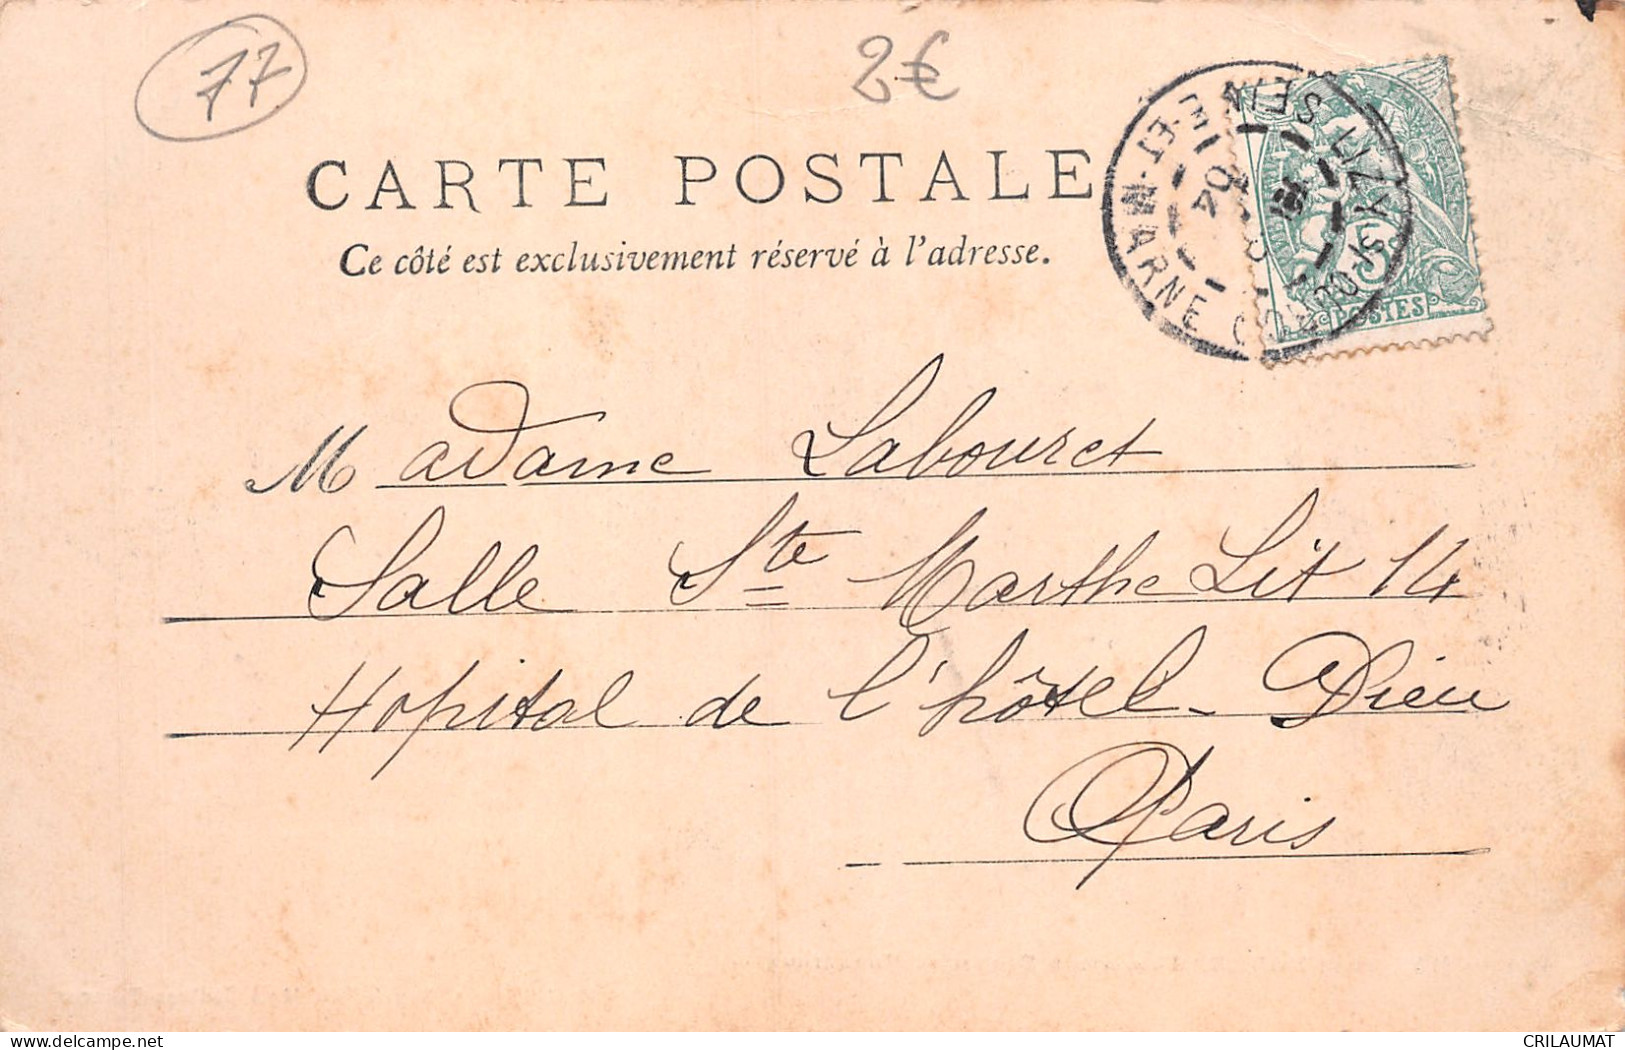 77
2€
CARTE POSTALE
Ce côté est exclusivement réservé à l'adresse.
LIZY-S-OURCQ
SEINE-ET-MARNE
04
5
POSTES
Madame Labouret
Salle Ste Marthe Lit 14
Hopital de l'hôtel-Dieu
Paris
delcampe.net
CRILAUMAT